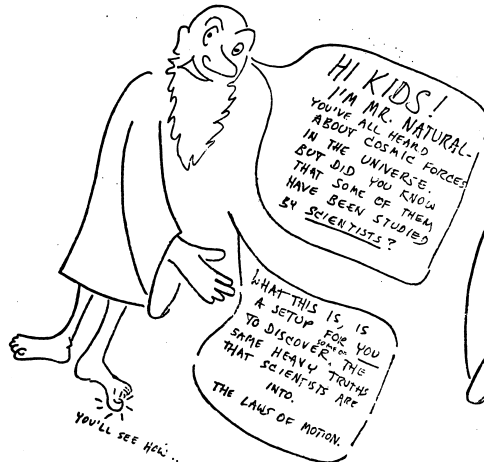 HI KIDS!
I'M MR. NATURAL-
YOU'VE ALL HEARD
ABOUT COSMIC FORCES
IN THE UNIVERSE.
BUT DID YOU KNOW
THAT SOME OF THEM
HAVE BEEN STUDIED
BY SCIENTISTS?
WHAT THIS IS, IS
A SETUP FOR YOU
TO DISCOVER SOME OF THE
SAME HEAVY TRUTHS
THAT SCIENTISTS ARE
INTO.
THE LAWS OF MOTION.
YOU'LL SEE HOW...